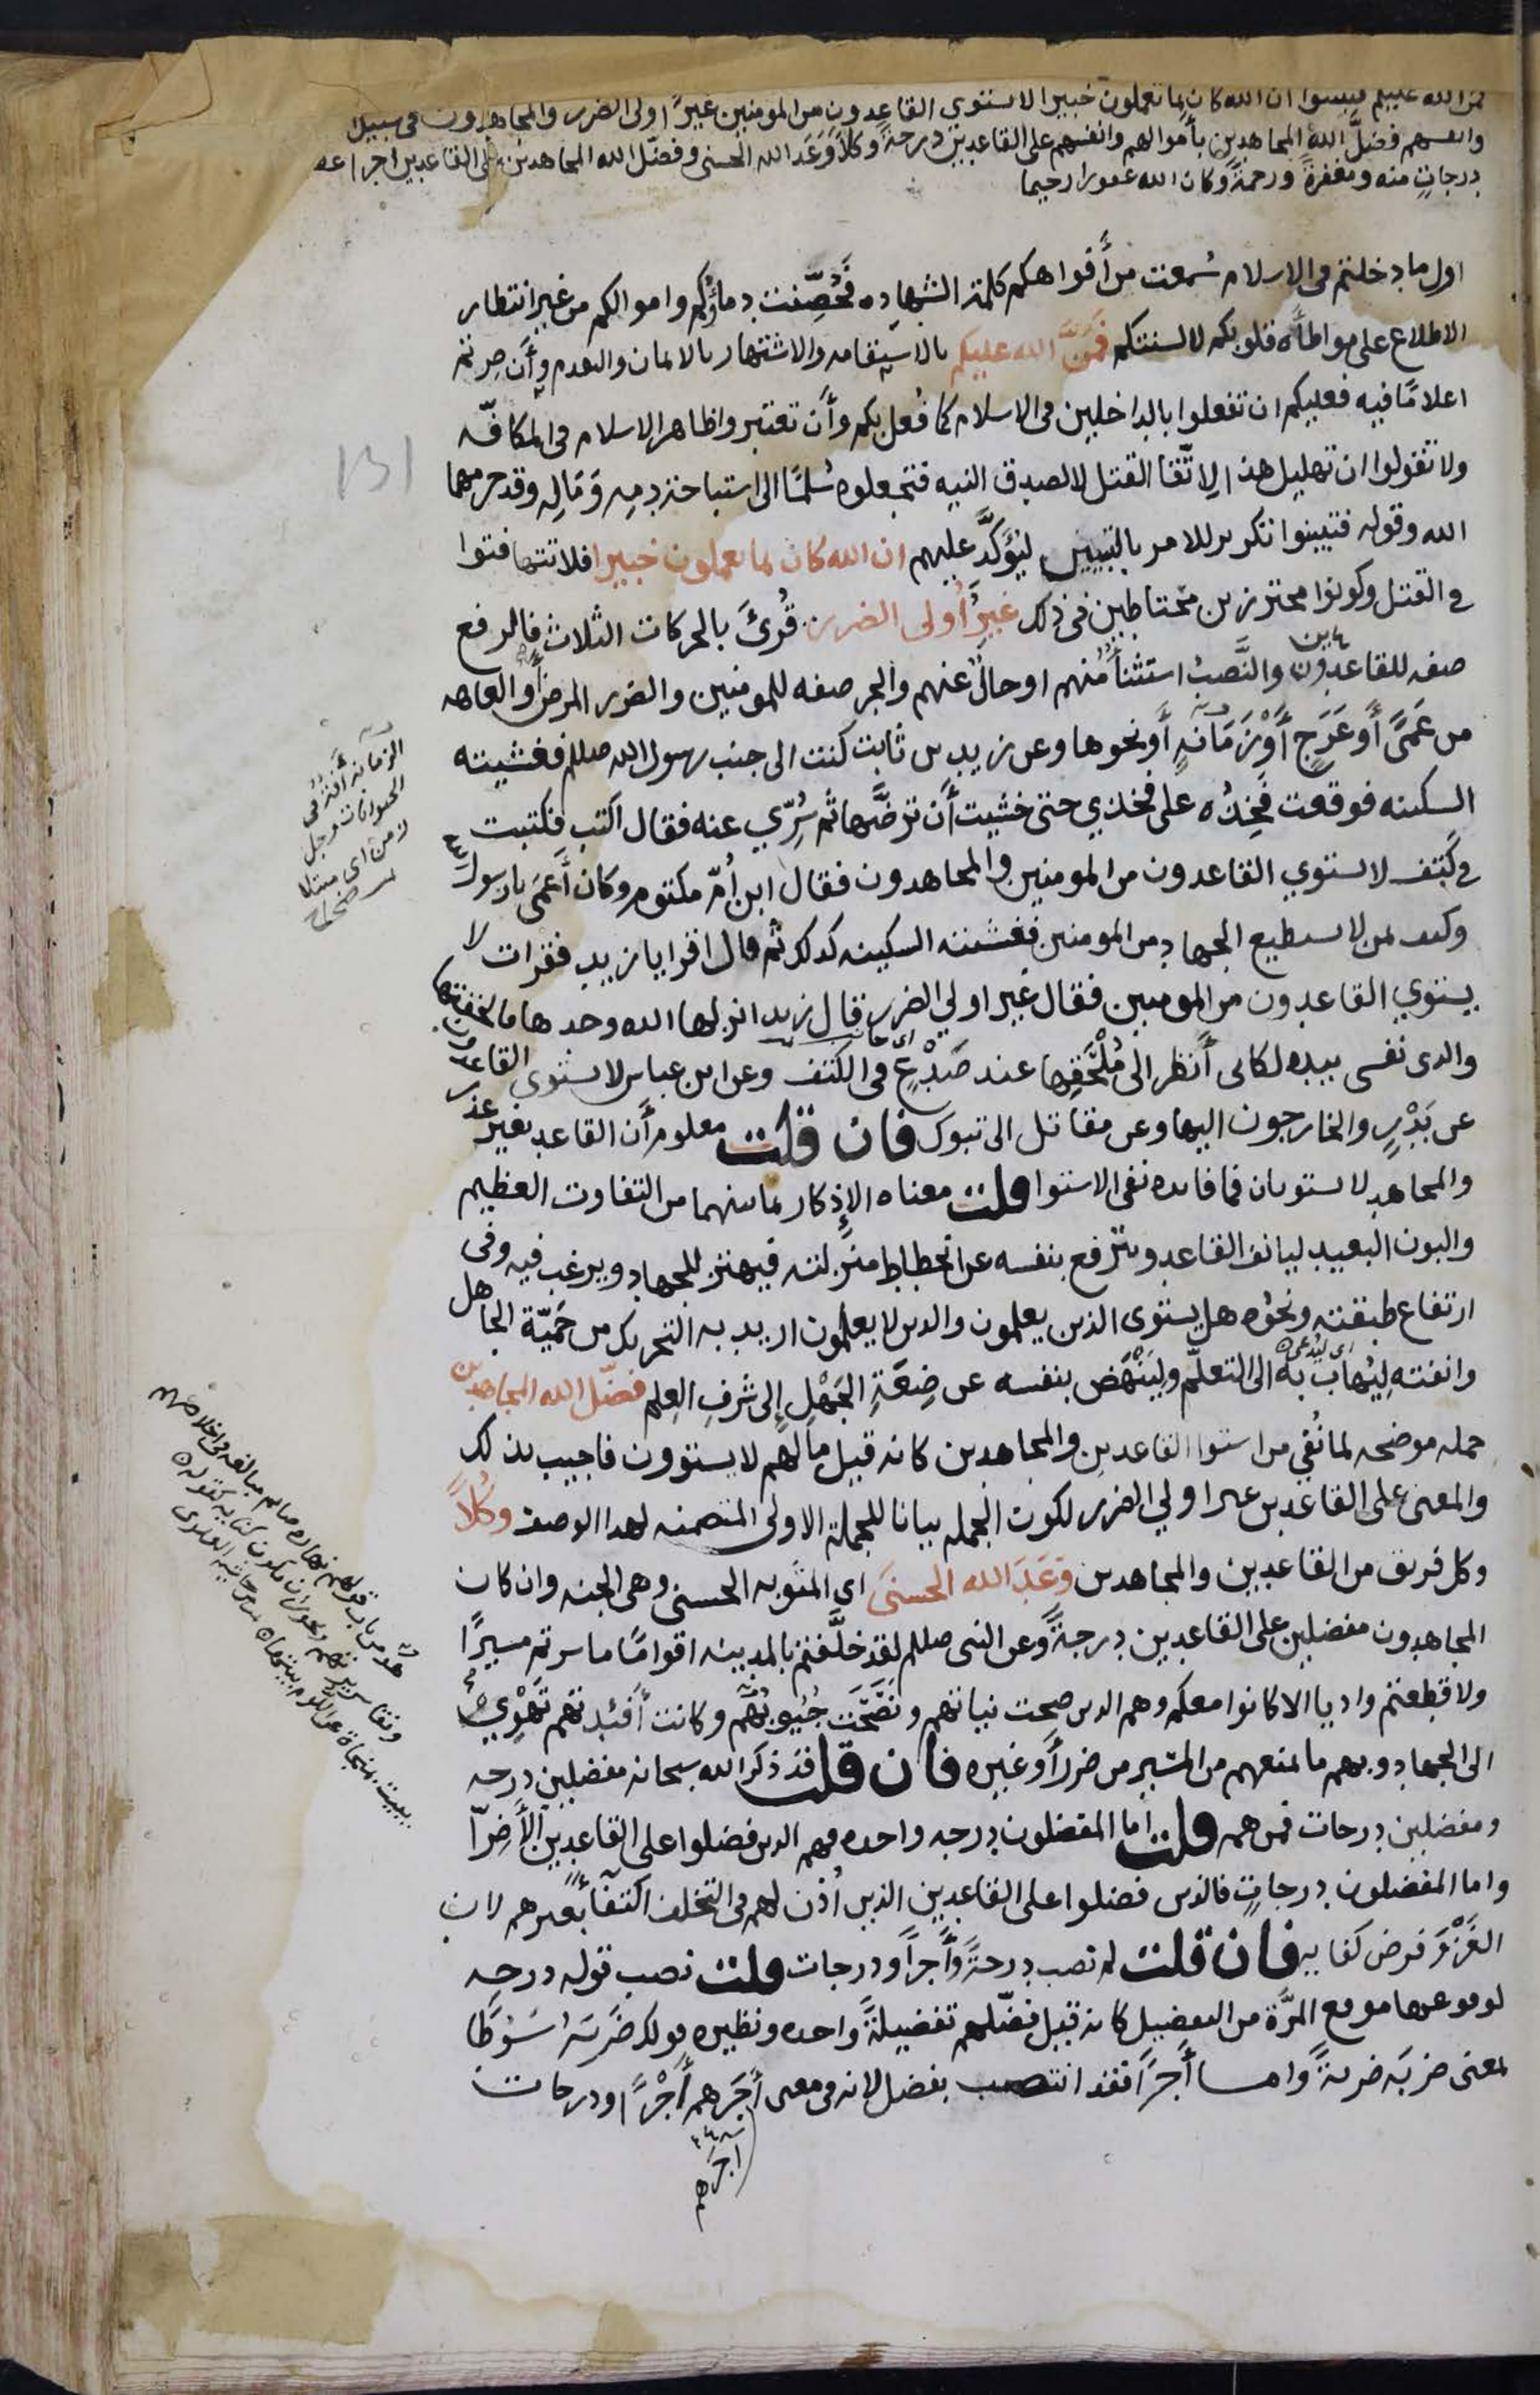 فمن الله عليكم فتبينوا ان الله كان بما تعملون خبيرا لا يستوي القاعدون من المومنين غيرُ اولى الضرر والمجاهدون فى سبيل
وانفسهم فضَّل اللهُ المجاهدين بأموالهم وانفسهم على القاعدين درجةً وكلاً وَعَدَ الله الحسنى وفضّل الله المجاهدين على القاعدين اجرا عظ
درجاتٍ منه ومغفرةً ورحمةً وكان الله غفورا رحيما
اول ما دخلتم فى الاسلام سُمعت من أفواهكم كلمة الشهاده فَحُصِّنت دماؤكم واموالكم من غير انتظار
الاطلاع على مواطأه قلوبكم لالسنتكم فمَنَّ الله عليكم بالاستقامه والاشتهار بالايمان والتقدم وأن صرتم
اعلامًا فيه فعليكم ان تفعلوا بالداخلين فى الاسلام كما فُعل بكم وأن تعتبروا ظاهر الاسلام فى المكافّه
ولا تقولوا ان تهليل هذا لِاتّقا القتل لا لصدق النيه فتجعلوه سُلمًا الى استباحة دمِه وَمَالِه وقد حرمهما
الله وقوله فتبينوا تكرير للامر بالتبيين ليُؤكِّدَ عليهم ان الله كان بما تعملون خبيرا فلا تتهافتوا
في القتل وكونوا محترزين محتاطين فى ذلك غيرُ أُولى الضرر قُرئَ بالحركات الثلاث فالرفع
صفه للقاعدون والنَّصبُ استثنأٌ منهم او حالٌ عنهم والجر صفه للمومنين والضرر المرض أو العاهه
من عَمىً أو عَرَجٍ أَوْ زَمَانَةٍ أو نحوها وعن زيد بن ثابت كنت الى جنب رسول الله صللم فغشيته
السكينه فوقعت فَخِذُه على فخذي حتى خشيت أن ترضَّها ثم سُرّي عنه فقال اكتب فكتبت
في كَتِف لا يستوي القاعدون من المومنين والمجاهدون فقال ابن أمّ مكتوم وكان أَعمَى يا رسول
وكيف بمن لا يسطيع الجهاد من المومنين فغشيته السكينه كذلك ثم قال اقرا يا زيد فقرات لا
يستوي القاعدون من المومنين فقال غير اولي الضرر قال زيد انزلها الله وحدها فالحقتها
والذى نفسى بيده لكانى أنظر الى مُلْحَقِها عند صَدْعٍ فى الكتف وعن ابن عباس لا يستوى القاعدون
عن بَدْرٍ والخارجون اليها وعن مقاتل الى تبوك فان قلت معلوم أن القاعد بغير عذر
والمجاهد لا يستويان فما فايده نفى الاستوا قلت معناه الإذكار بما بينهما من التفاوت العظيم
والبون البعيد ليانف القاعد ويترفع بنفسه عن انحطاط منزلته فيهتز للجهاد ويرغب فيه وفى
ارتفاع طبقته ونحوُه هل يستوى الذين يعلمون والذين لا يعلمون اريد به التحريك من حَمِيّة الجاهل
وانفته لِيُهاب به الى التعلّم ولِيَنْهَض بنفسه عن ضِعَةِ الجَهْلِ إلى شرفِ العِلم فضّل الله المجاهدين
جمله موضحه لما نُفي من استوا القاعدين والمجاهدين كانه قيل ما لهم لا يستوون فاجيب بذلك
والمعنى على القاعدين غير اولي الضرر لكون الجمله بيانا للجملة الاولى المتضمنه لهذا الوصف وكُلاًّ
وكل فريق من القاعدين والمجاهدين وَعَدَ الله الحسنى اى المثوبه الحسنى وهى الجنه وان كان
المجاهدون مفضلين على القاعدين درجةً وعن النبى صللم لقد خلَّفتم بالمدينه اقوامًا ما سرتم مسيرًا
ولا قطعتم واديا الا كانوا معكم وهم الذين صحت نياتهم ونَصَحَت جُيوبُهُم وكانت أفئدتهم تَهْوِي
الى الجهاد وبهم ما يمنعهم من المسير من ضررٍ أو غيره فان قلت قد ذكر الله سبحانه مفضلين درجه
ومفضلين درجات فمن هم قلت اما المفضلون درجه واحده فهم الذين فضلوا على القاعدين الأضِرّا
واما المفضلون درجاتٍ فالذين فضلوا على القاعدين الذين أُذن لهم فى التخلف اكتفاً بغيرهم لان
الغَزْوَ فرض كفايه فان قلت لم نصب درجةً وأجراً ودرجات قلت نصب قوله درجه
لوقوعها موقع المرَّة من التفضيل كانه قيل فضّلهم تفضيلةً واحده ونظيره قولك ضربَهُ سَوْطًا
بمعنى ضربَه ضربةً واما أجرًا فقد انتصب بفضل لانه فى معنى أجَرهم أَجْرًا ودرجات
اجرهم
131
الزمانه آفة فى
الحيوانات ورجل
زمن اى مبتلا
صحاح
اى جانب
اى ليدعى
هو من باب قولهم نهاره صايم مبالغه فى اخلاصهم
ونقا سريرتهم ويجوز ان يكون كنايه كقوله
يبيت بمنجاة عن اللوم بيتها